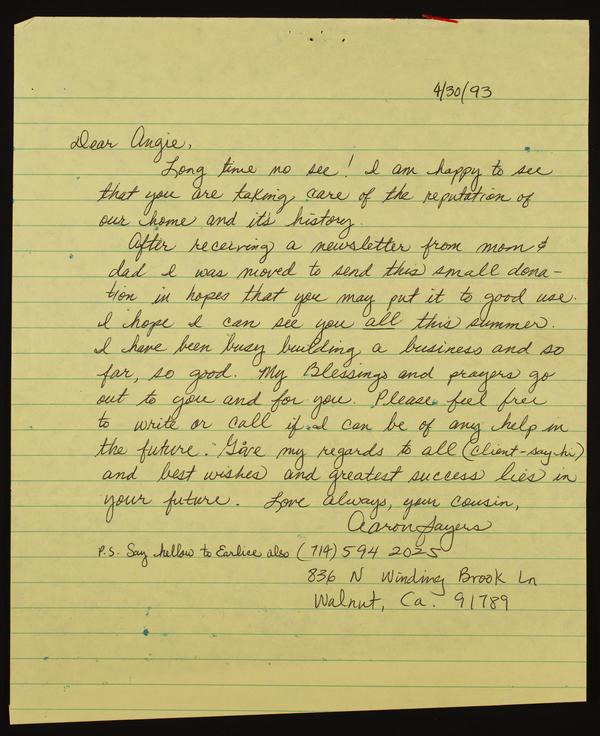 4/30/93
Dear Angie,
Long time no see! I am happy to see
that you are taking care of the reputation of
our home and it's history.
After receiving a newsletter from mom &
dad I was moved to send this small dona-
tion in hopes that you may put it to good use.
I hope I can see you all this summer.
I have been busy building a business and so
far, so good. My Blessings and prayers go
out to you and for you. Please feel free
to write or call if I can be of any help in
the future. Give my regards to all (client-say-hi)
and best wishes and greatest success lies in
your future. Love always, your cousin,
Aaron Sayers
P.S. Say hellow to Earlice also (714) 594 2025
836 N Winding Brook Ln
Walnut, Ca. 91789